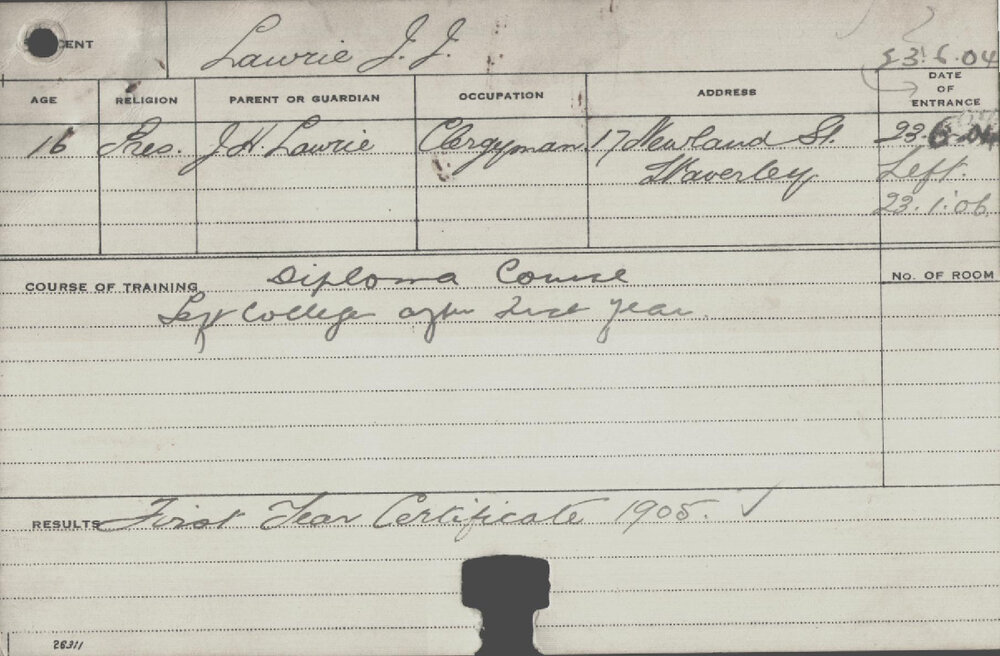 Lawrie J. J.
23.6.04
AGE RELIGION PARENT OR GUARDIAN OCCUPATION ADDRESS DATE OF ENTRANCE
16 Pres. J. H. Lawrie Clergyman 17 Newland St. 23.6.04
Waverley Left
23.1.06
COURSE OF TRAINING Diploma Course No. OF ROOM
Left College after 2nd year
RESULTS First Year Certificate 1905. ✓
26311